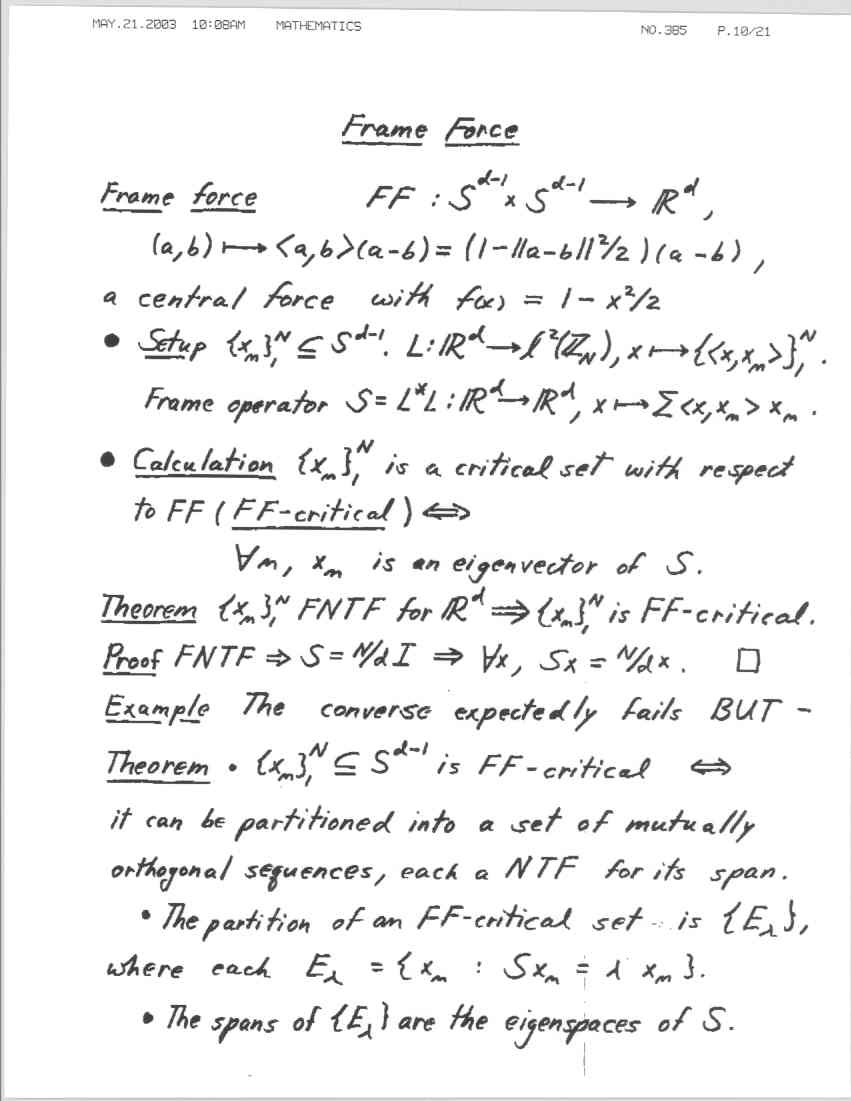 MAY.21.2003 10:08AM MATHEMATICS NO.385 P.10/21
Frame Force
Frame force FF : S^{d-1} x S^{d-1} → ℝ^d ,
(a,b) ↦ <a,b>(a-b) = (1-||a-b||²/2)(a-b) ,
a central force with f(x) = 1 - x²/2
• Setup {x_m}_1^N ⊆ S^{d-1}. L: ℝ^d → l²(ℤ_N), x ↦ {<x,x_m>}_1^N .
Frame operator S = L*L : ℝ^d → ℝ^d, x ↦ Σ <x,x_m> x_m .
• Calculation {x_m}_1^N is a critical set with respect
to FF (FF-critical) ⇔
∀m, x_m is an eigenvector of S.
Theorem {x_m}_1^N FNTF for ℝ^d ⇒ {x_m}_1^N is FF-critical.
Proof FNTF ⇒ S = N/d I ⇒ ∀x, Sx = N/d x. □
Example The converse expectedly fails BUT -
Theorem • {x_m}_1^N ⊆ S^{d-1} is FF-critical ⇔
it can be partitioned into a set of mutually
orthogonal sequences, each a NTF for its span.
• The partition of an FF-critical set is {E_λ},
where each E_λ = {x_m : Sx_m = λ x_m}.
• The spans of {E_λ} are the eigenspaces of S.